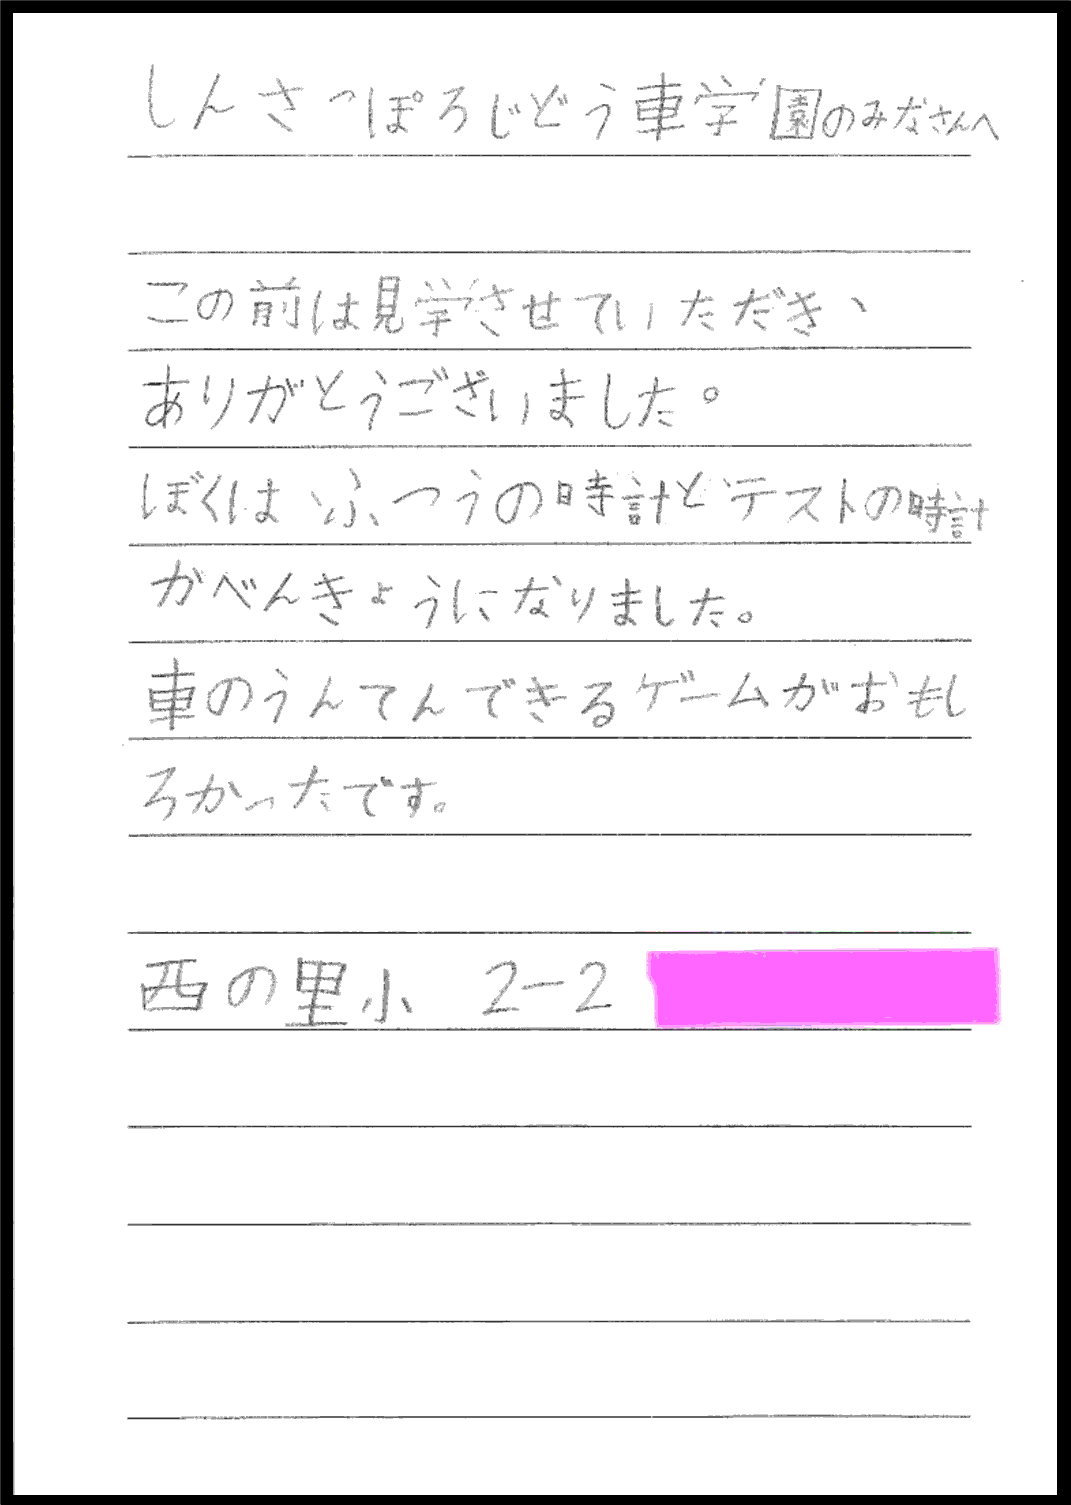 しんさっぽろじどう車学園のみなさんへ
この前は見学させていただき、
ありがとうございました。
ぼくはふつうの時計とテストの時計
がべんきょうになりました。
車のうんてんできるゲームがおもし
ろかったです。
西の里小 2-2